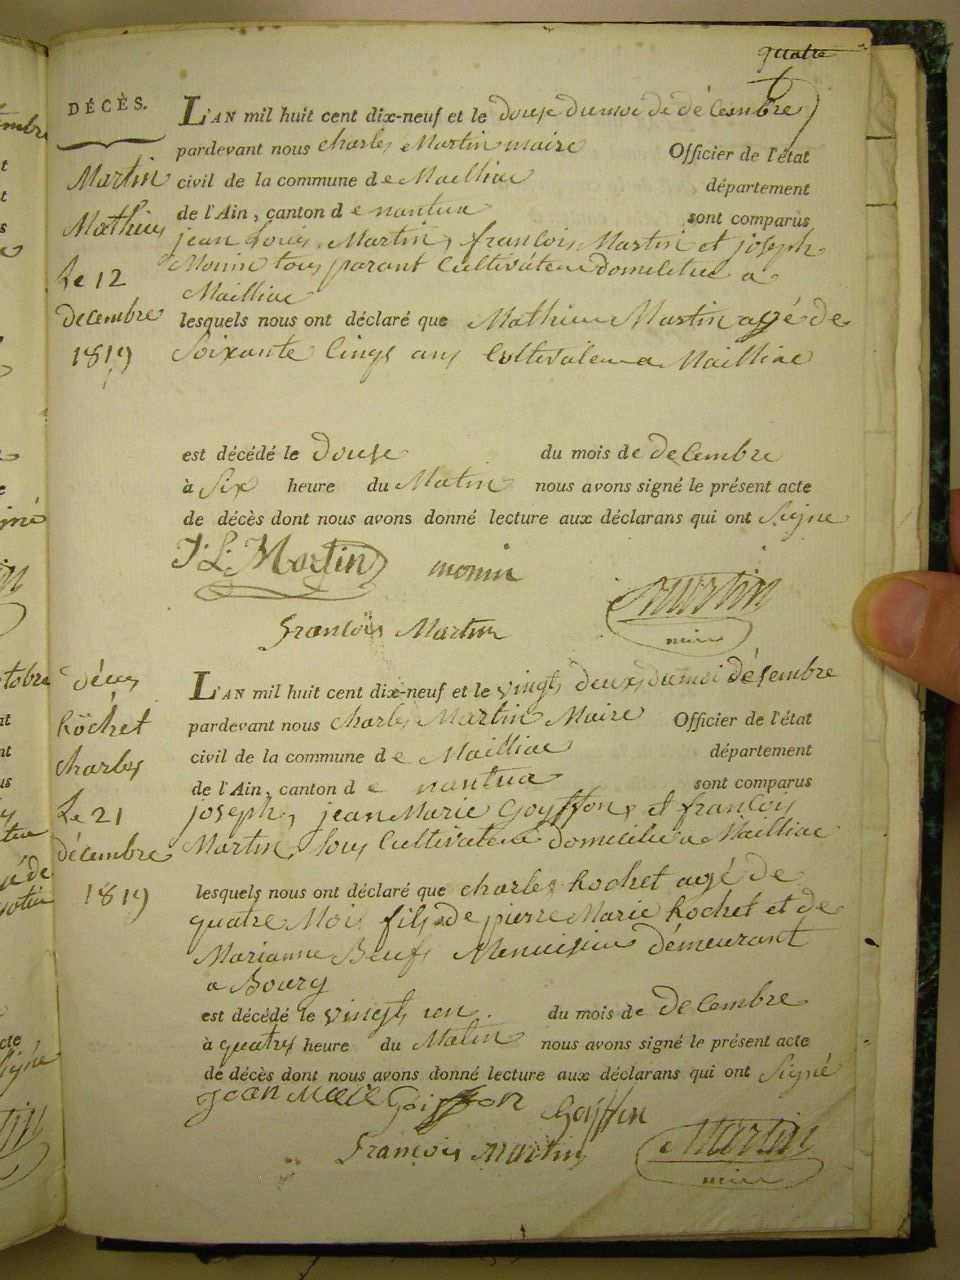 quatre
DÉCÈS.
L'AN mil huit cent dix-neuf et le douse du moi de décembre
pardevant nous charles Martin maire Officier de l'état
civil de la commune de Mailliac département
de l'Ain, canton de nantua sont comparus
jean Louis Martin, francois Martin et joseph
Monin tous parant Cultivateur domilitue a
Mailliac
lesquels nous ont déclaré que Mathieu Martin agé de
Soixante Cinqs ans Cultivateur a Mailliac
Martin
Mathieu
Le 12
decembre
1819
est décédé le douse du mois de decembre
à Six heure du Matin nous avons signé le présent acte
de décès dont nous avons donné lecture aux déclarans qui ont Signe
J. L. Martin monin
martin
maire
François Martin
décès
Rochet
charles
Le 21
décembre
1819
L'AN mil huit cent dix-neuf et le vingt deux du moi désembre
pardevant nous charles Martin Maire Officier de l'état
civil de la commune de Mailliac département
de l'Ain, canton de nantua sont comparus
joseph, jean Marie Goyffon, et françois
Martin, tous Cultivateur domicilie a Mailliac
lesquels nous ont déclaré que charles Rochet agé de
quatre Mois fils de pierre Marie Rochet et de
Marianne Beuf Menuisier démeurant
a Bourg
est décédé le vingt un du mois de decembre
à quatres heure du Matin nous avons signé le présent acte
de décès dont nous avons donné lecture aux déclarans qui ont Signé
Jean Marie Goiffon Goiffon
François Martin Martin
maire